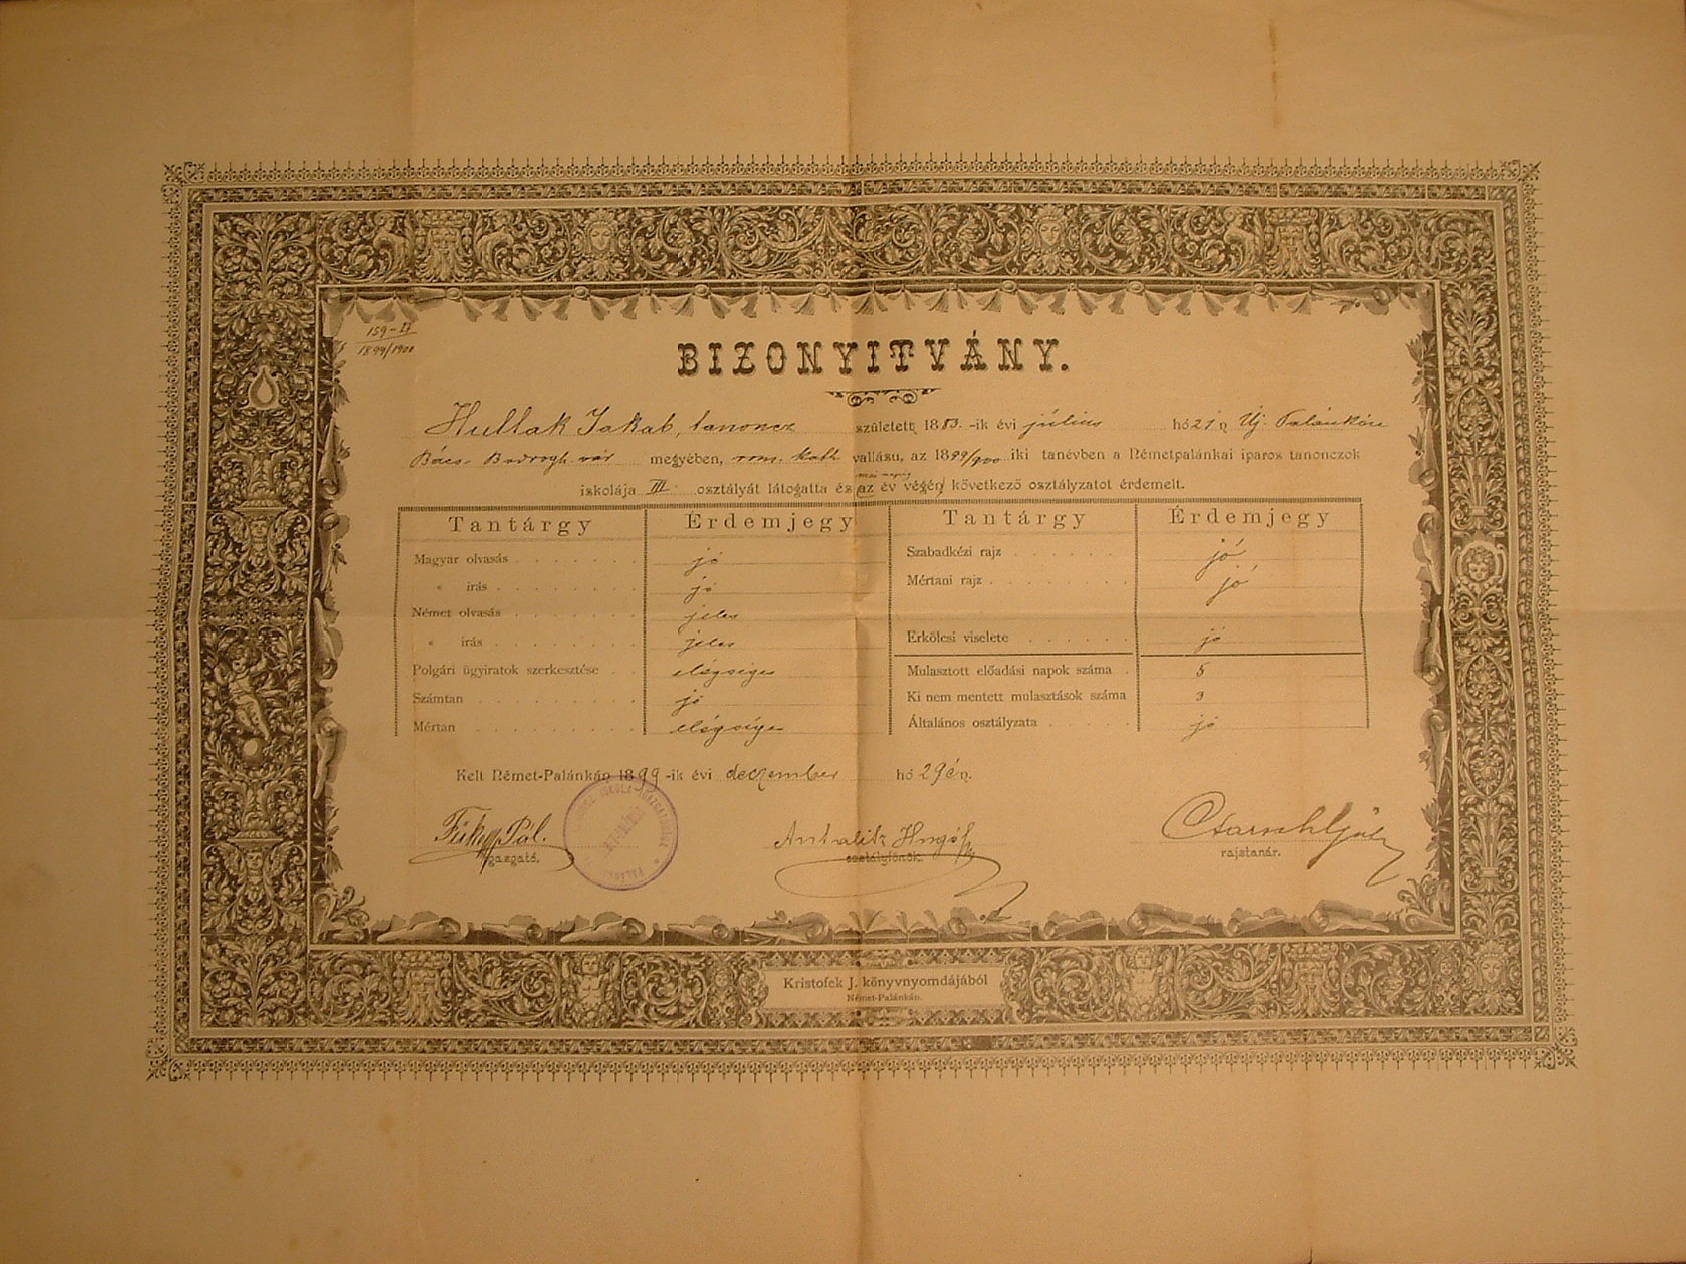 159-II
1899/1900
BIZONYITVÁNY.
Hullak Jakab, tanoncz született 1883.-ik évi július hó 21 n Új. Palánkán
Bács Bodrogh vár megyében, rom. kath vallásu, az 1899/900 iki tanévben a Németpalánkai iparos tanonczok
mai napig
iskolája III. osztályát látogatta és az év végén következő osztályzatot érdemelt.
Tantárgy Érdemjegy Tantárgy Érdemjegy
Magyar olvasás jó Szabadkézi rajz jó
" irás jó Mértani rajz jó
Német olvasás jeles
" irás jeles Erkölcsi viselete jó
Polgári ügyiratok szerkesztése elégséges Mulasztott előadási napok száma 5
Számtan jó Ki nem mentett mulasztások száma 3
Mértan elégséges Általános osztályzata jó
Kelt Német-Palánkán 1899-ik évi deczember hó 29én.
Pál. Antalik Hugó
igazgató. osztályfőnök. rajztanár.
Kristofek J. könyvnyomdájából
Német-Palánkán.